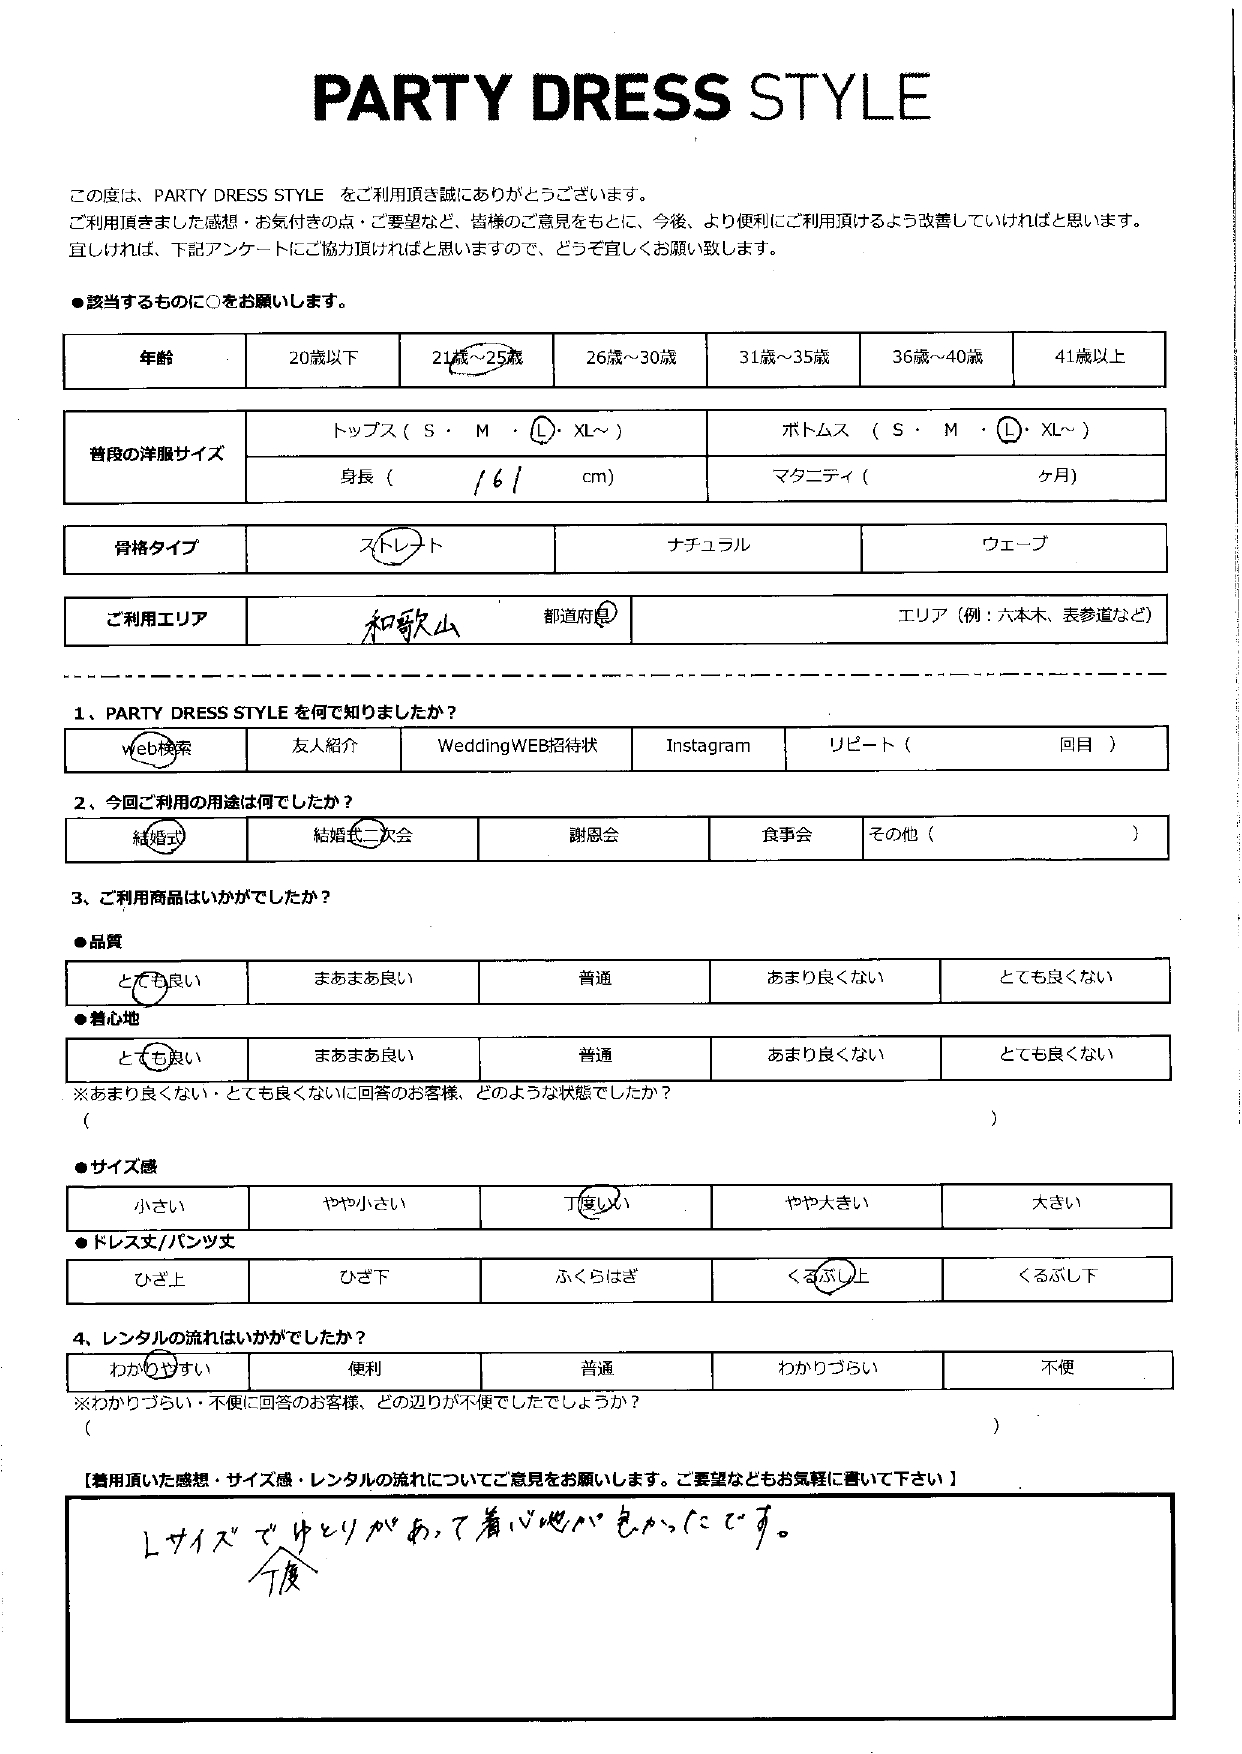 PARTY DRESS STYLE
この度は、PARTY DRESS STYLE をご利用頂き誠にありがとうございます。
ご利用頂きました感想・お気付きの点・ご要望など、皆様のご意見をもとに、今後、より便利にご利用頂けるよう改善していければと思います。
宜しければ、下記アンケートにご協力頂ければと思いますので、どうぞ宜しくお願い致します。
●該当するものに○をお願いします。
年齢 20歳以下 21歳～25歳 26歳～30歳 31歳～35歳 36歳～40歳 41歳以上
普段の洋服サイズ
トップス ( S ・ M ・ L ・ XL～ ) ボトムス ( S ・ M ・ L ・ XL～ )
身長 ( 161 cm) マタニティ ( ヶ月)
骨格タイプ ストレート ナチュラル ウェーブ
ご利用エリア 和歌山 都道府県 エリア（例：六本木、表参道など）
1、PARTY DRESS STYLE を何で知りましたか？
web検索 友人紹介 WeddingWEB招待状 Instagram リピート ( 回目 )
2、今回ご利用の用途は何でしたか？
結婚式 結婚式二次会 謝恩会 食事会 その他 ( )
3、ご利用商品はいかがでしたか？
●品質
とても良い まあまあ良い 普通 あまり良くない とても良くない
●着心地
とても良い まあまあ良い 普通 あまり良くない とても良くない
※あまり良くない・とても良くないに回答のお客様、どのような状態でしたか？
( )
●サイズ感
小さい やや小さい 丁度いい やや大きい 大きい
●ドレス丈/パンツ丈
ひざ上 ひざ下 ふくらはぎ くるぶし上 くるぶし下
4、レンタルの流れはいかがでしたか？
わかりやすい 便利 普通 わかりづらい 不便
※わかりづらい・不便に回答のお客様、どの辺りが不便でしたでしょうか？
( )
【着用頂いた感想・サイズ感・レンタルの流れについてご意見をお願いします。ご要望などもお気軽に書いて下さい 】
Lサイズでゆとりがあって着心地が良かったです。
丁度